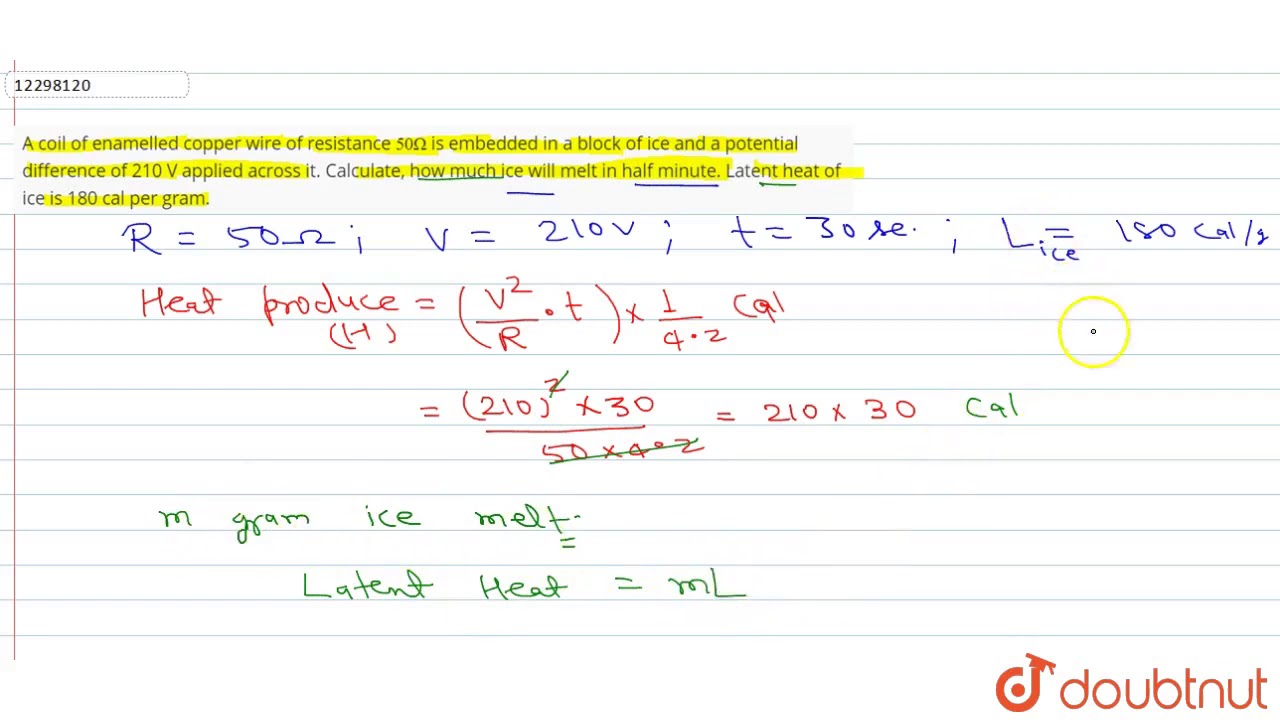 12298120
A coil of enamelled copper wire of resistance 50Ω is embedded in a block of ice and a potential
difference of 210 V applied across it. Calculate, how much ice will melt in half minute. Latent heat of
ice is 180 cal per gram.
R = 50Ω ; V = 210V ; t = 30 se. ; L ice = 180 Cal/g
Heat produce = (V²/R · t) × 1/4·2 Cal
(H)
= (210)² × 30 / 50 × 4·2 = 210 × 30 Cal
m gram ice melt.
Latent Heat = mL
doubtnut